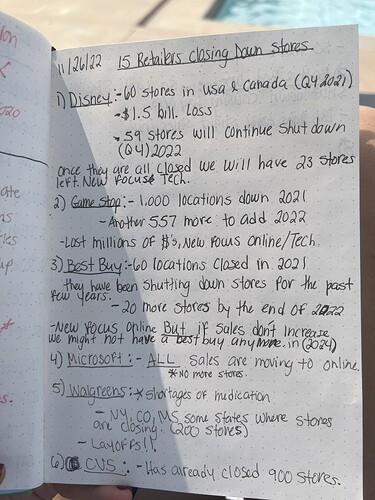 11/26/22 15 Retailers Closing Down Stores
1) Disney:- 60 stores in usa & Canada (Q4 2021)
- $1.5 bill. Loss
- 59 stores will continue Shut down
(Q4) 2022
once they are all closed we will have 23 stores
left. New focus Tech.
2) Game Stop:- 1,000 locations down 2021
- Another 557 more to add 2022
- Lost millions of $'s, New Focus online/Tech.
3) Best Buy:- 60 locations closed in 2021
they have been shutting down stores for the past
few years.
- 20 more stores by the end of 2022
- New focus online But if sales don't increase
we might not have a best buy anymore. in (2024)
4) Microsoft:- ALL sales are moving to online.
*No more stores.
5) Walgreens:* Shortages of medication
- NY, CO, MS some states where stores
are closing. (200 stores)
- Layoffs!!
6) CVS:- Has already closed 900 stores.
2020
ate
ns
up
s.